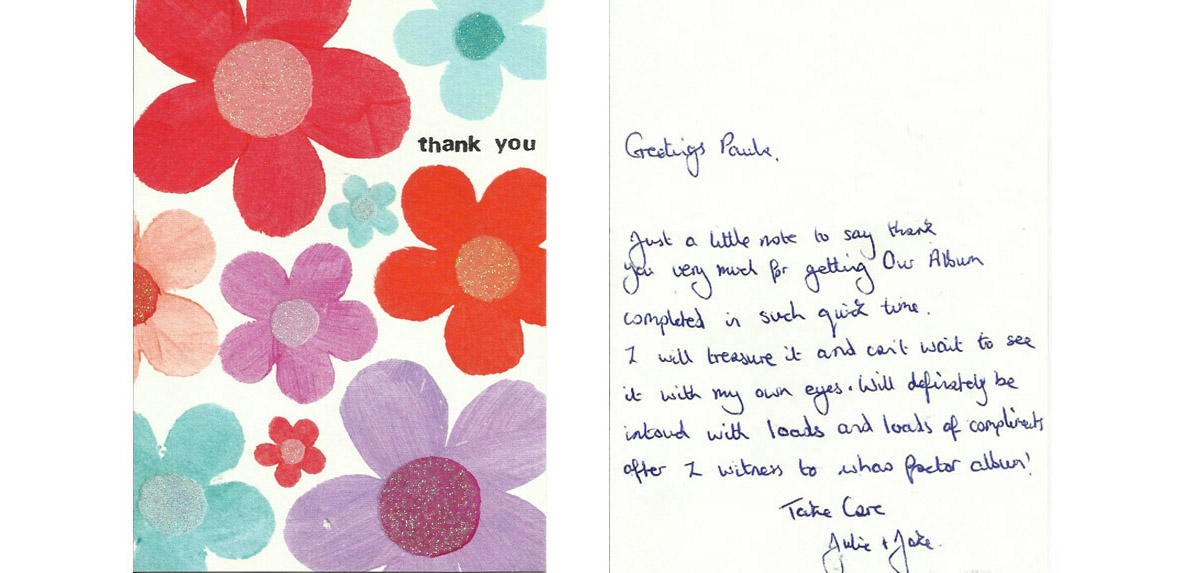 thank you
Greetings Paula,
Just a little note to say thank
you very much for getting Our Album
completed in such quick time.
I will treasure it and can't wait to see
it with my own eyes. Will definately be
intouch with loads and loads of compliments
after I witness to whaw factor album!
Take Care
Julie + Jake.